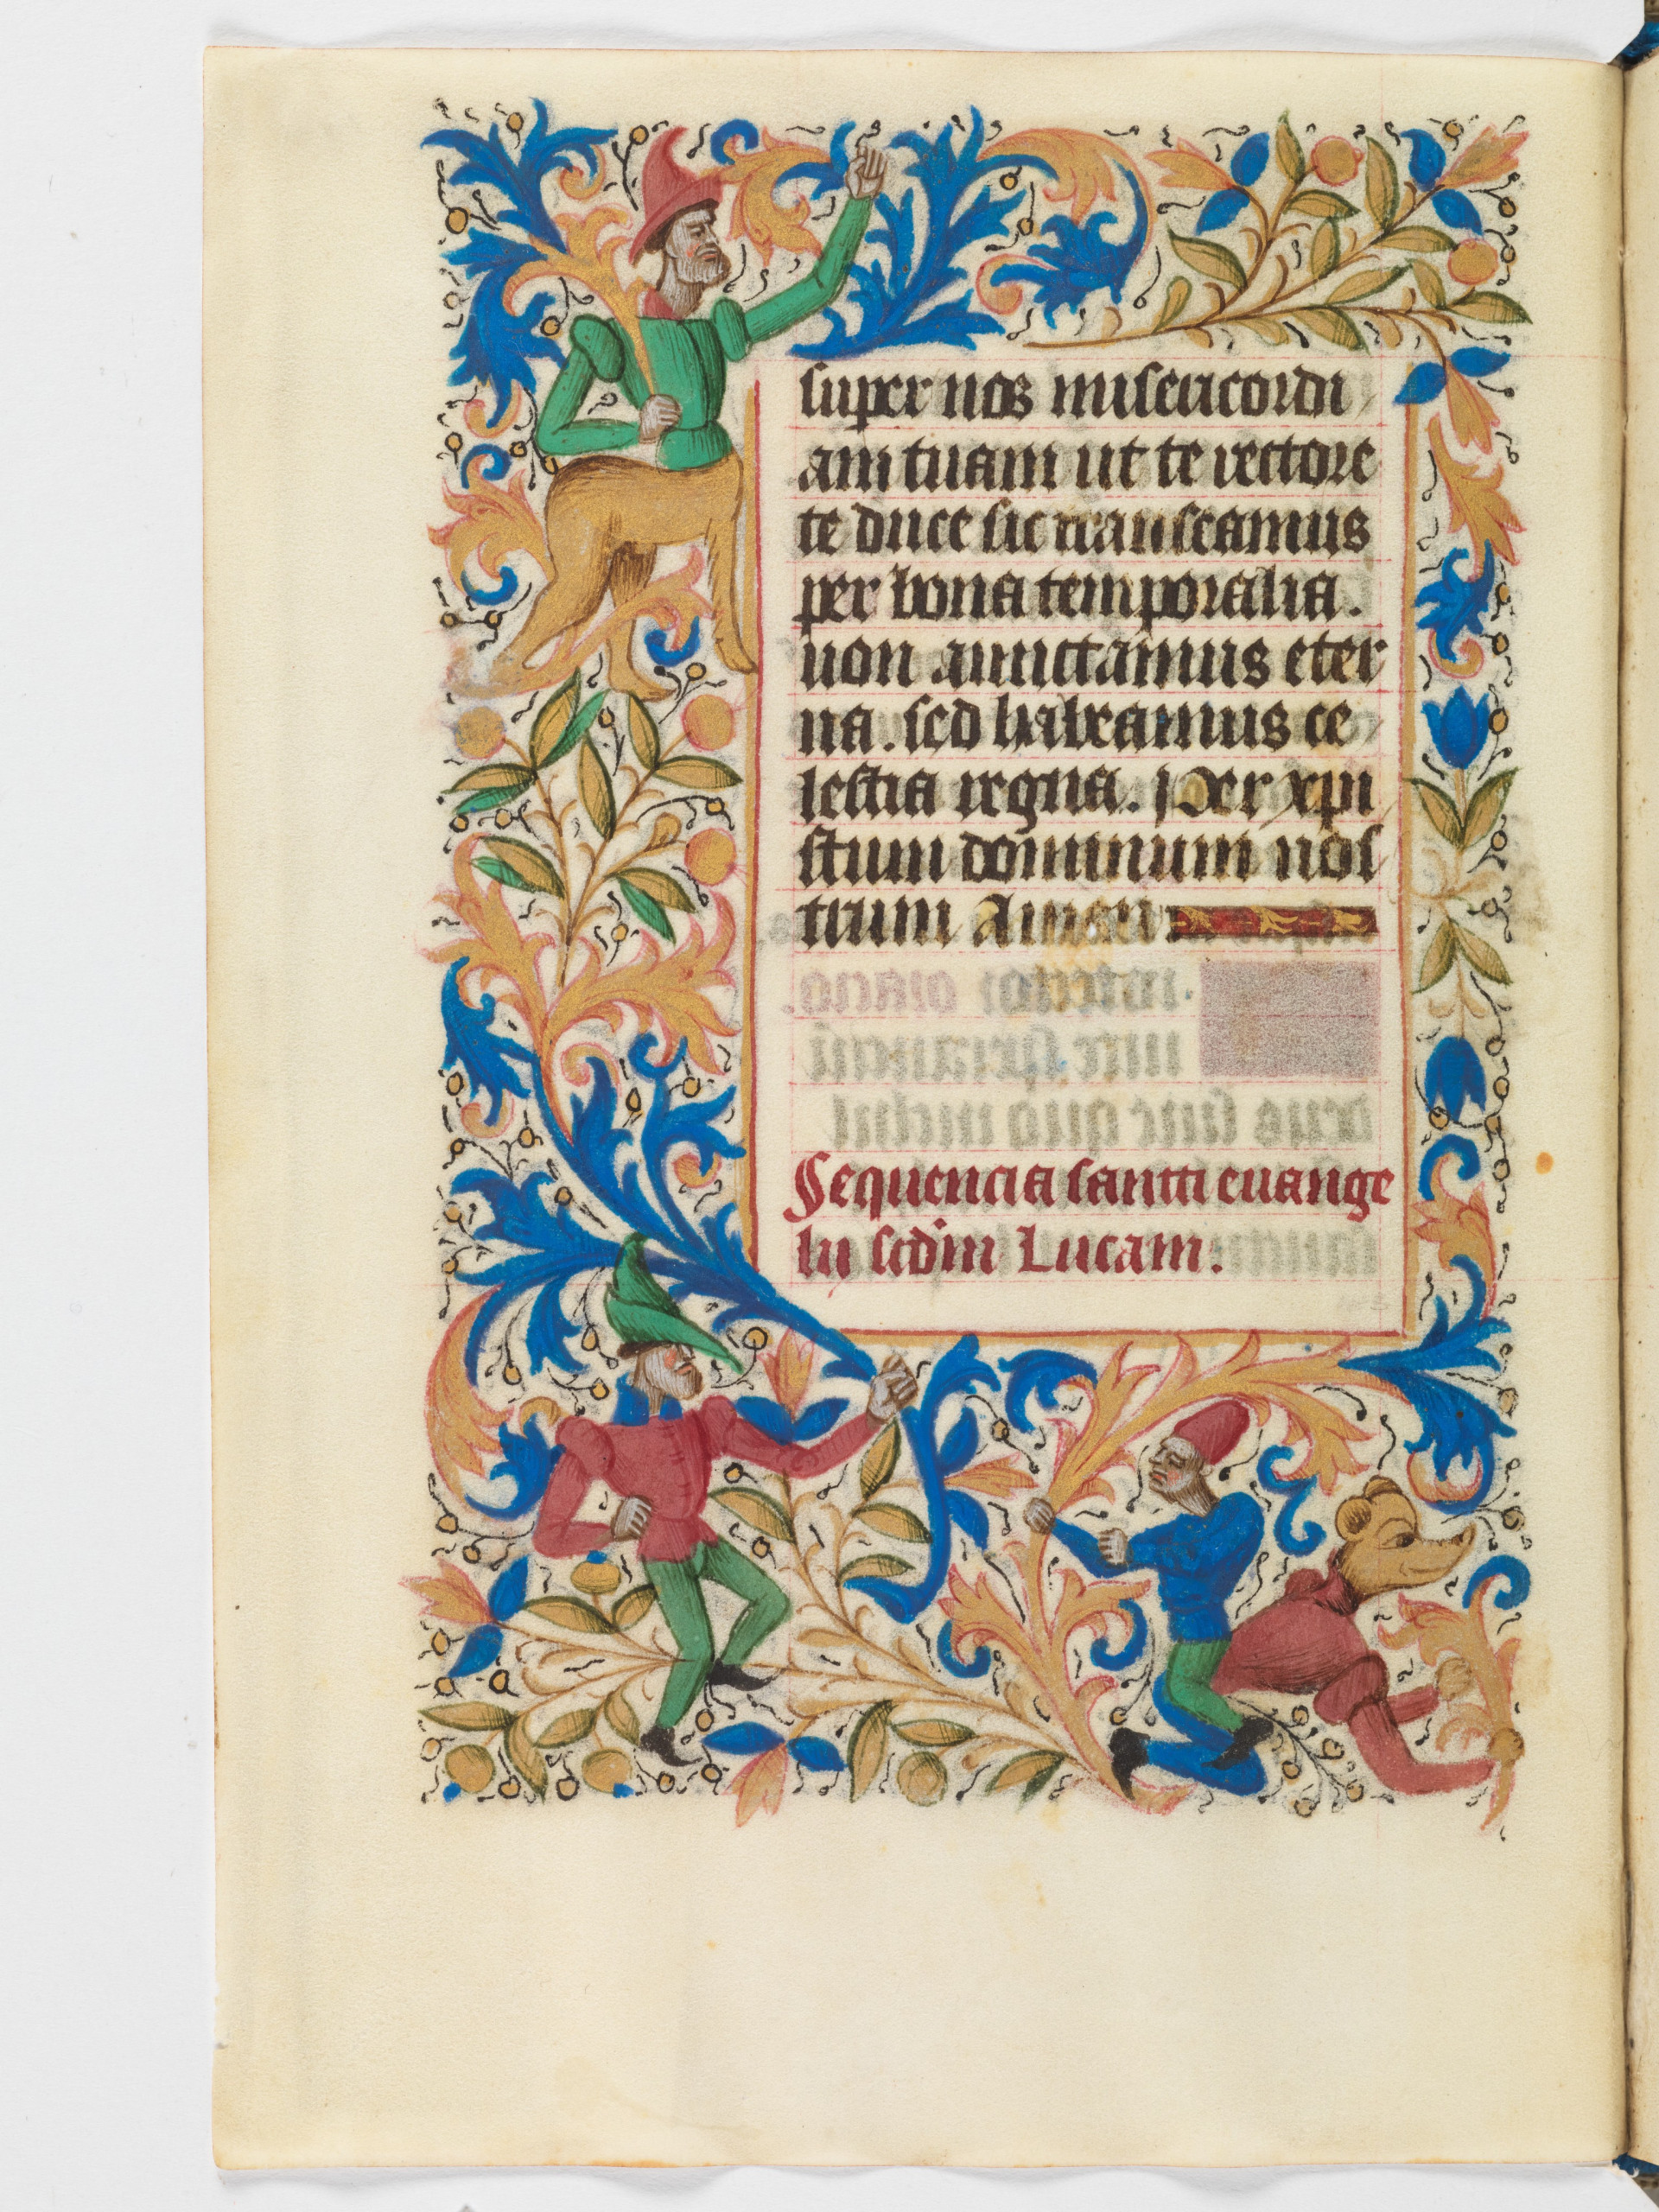 super nos misericordi
am tuam ut te rectore
te duce sic transeamus
per bona temporalia.
non amictamus eter
na. sed habeamus ce
lestia regna. Per xpi
stum dominum nos
trum Amen.
Sequencia sancti euange
lii scdm Lucam.